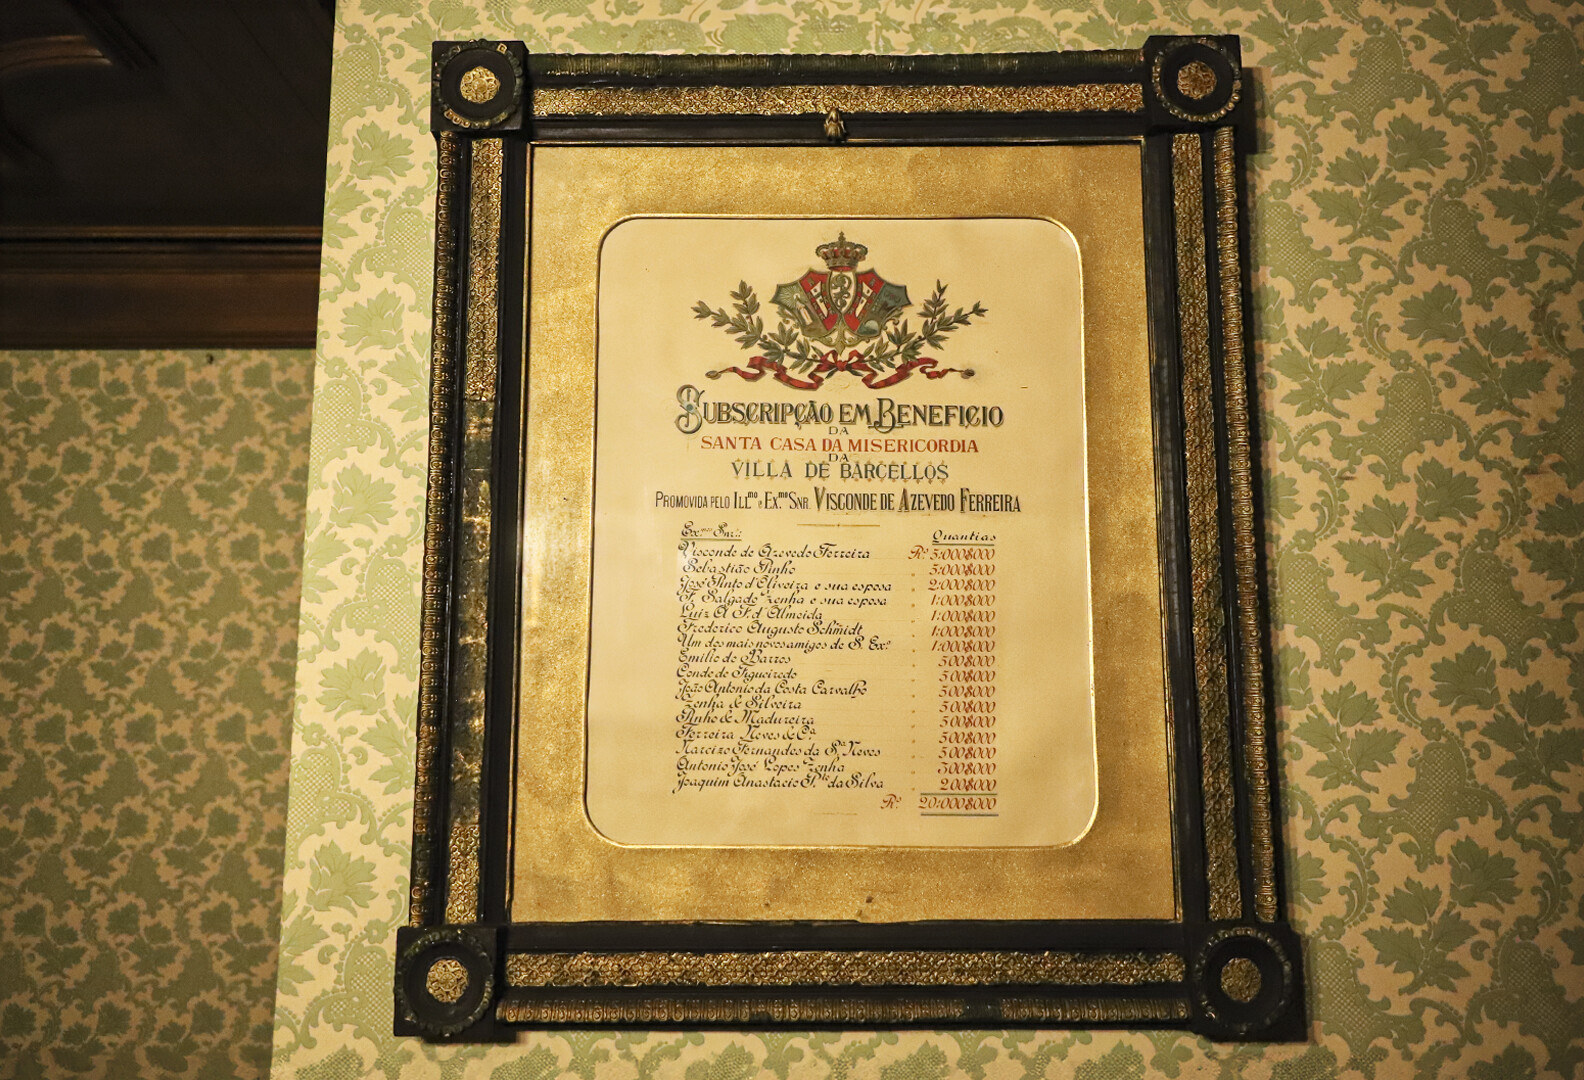 SUBSCRIPÇÃO EM BENEFICIO
DA
SANTA CASA DA MISERICORDIA
DA
VILLA DE BARCELLOS
PROMOVIDA PELO ILL.mo e EX.mo SNR. VISCONDE DE AZEVEDO FERREIRA
Ex.mos Snr.s Quantias
Visconde de Azevedo Ferreira Rs 5:000$000
Sebastião Pinho " 5:000$000
José Pinto d'Oliveira e sua esposa " 2:000$000
F. Salgado Zenha e sua esposa " 1:000$000
Luiz A. F. d'Almeida " 1:000$000
Frederico Augusto Schmidt " 1:000$000
Um dos mais novos amigos de S. Ex.a " 1:000$000
Emilio de Barros " 500$000
Conde de Figueiredo " 500$000
João Antonio da Costa Carvalho " 500$000
Zenha & Silveira " 500$000
Pinho & Madureira " 500$000
Ferreira Neves & C.a " 500$000
Narcizo Fernandes da S.a Neves " 500$000
Antonio José Lopes Zenha " 300$000
Joaquim Anastacio P.to da Silva " 200$000
Rs 20:000$000